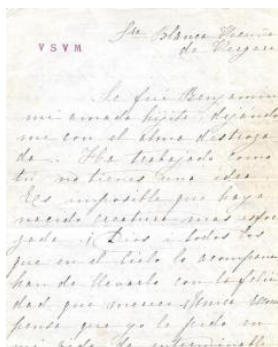 Sra Blanca Vicuña
de Vergara
V S V M
Se fué Benjamin
mi amado hijito dejándo
me con el alma destroza
da. Ha trabajado como
tu no tienes una idea
Es imposible que haya
nacido creatura mas esfor
zada i Dios i todos los
que en el cielo lo acompañan
han de llevarlo con la felici
dad que merece. Nunca
pensé que yo le pido en
mi vida de interminable